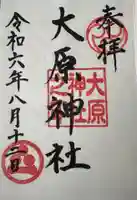 奉拝
大原神社
大原
神社
令和六年八月十三日